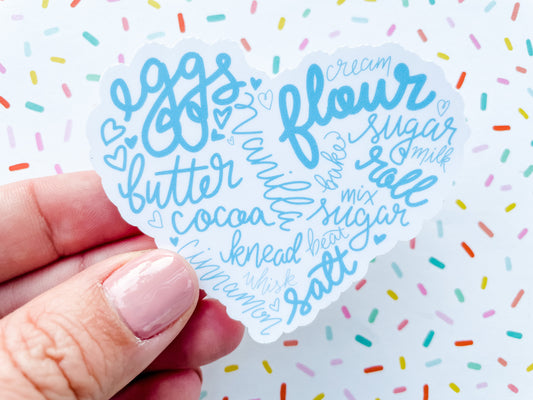 eggs
cream
flour
vanilla
sugar
milk
butter
bake
roll
cocoa
mix
sugar
knead
beat
cinnamon
whisk
salt